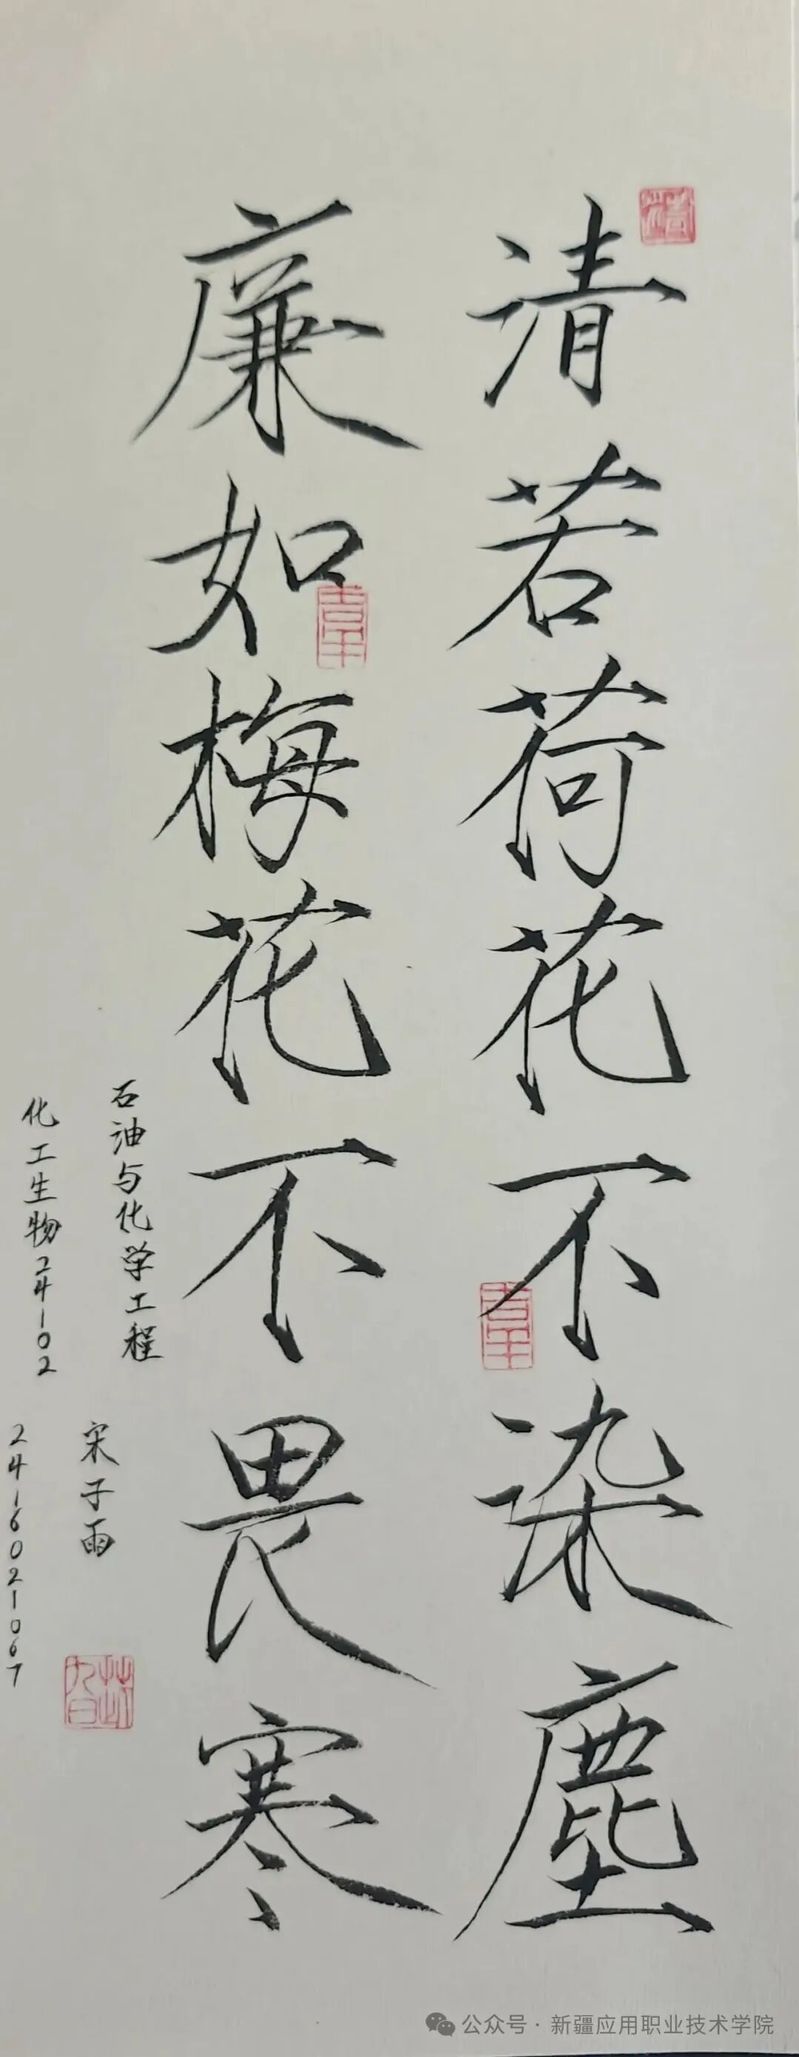 清若荷花不染塵
廉如梅花不畏寒
石油与化学工程
化工生物24102
宋子雨
2416021067
公众号·新疆应用职业技术学院